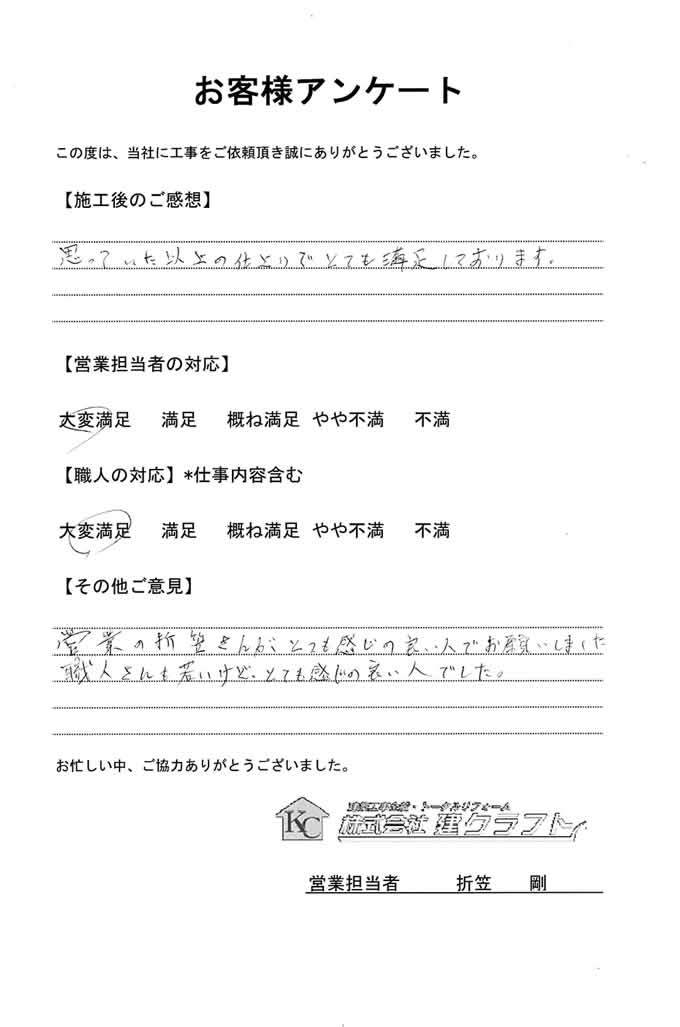 お客様アンケート
この度は、当社に工事をご依頼頂き誠にありがとうございました。
【施工後のご感想】
思っていた以上の仕上りでとても満足しております。
【営業担当者の対応】
大変満足 満足 概ね満足 やや不満 不満
【職人の対応】*仕事内容含む
大変満足 満足 概ね満足 やや不満 不満
【その他ご意見】
営業の折笠さんがとても感じの良い人でお願いしました
職人さんも若いけど、とても感じの良い人でした。
お忙しい中、ご協力ありがとうございました。
KC
・トータルリフォーム
株式会社 建クラフト
営業担当者 折笠 剛